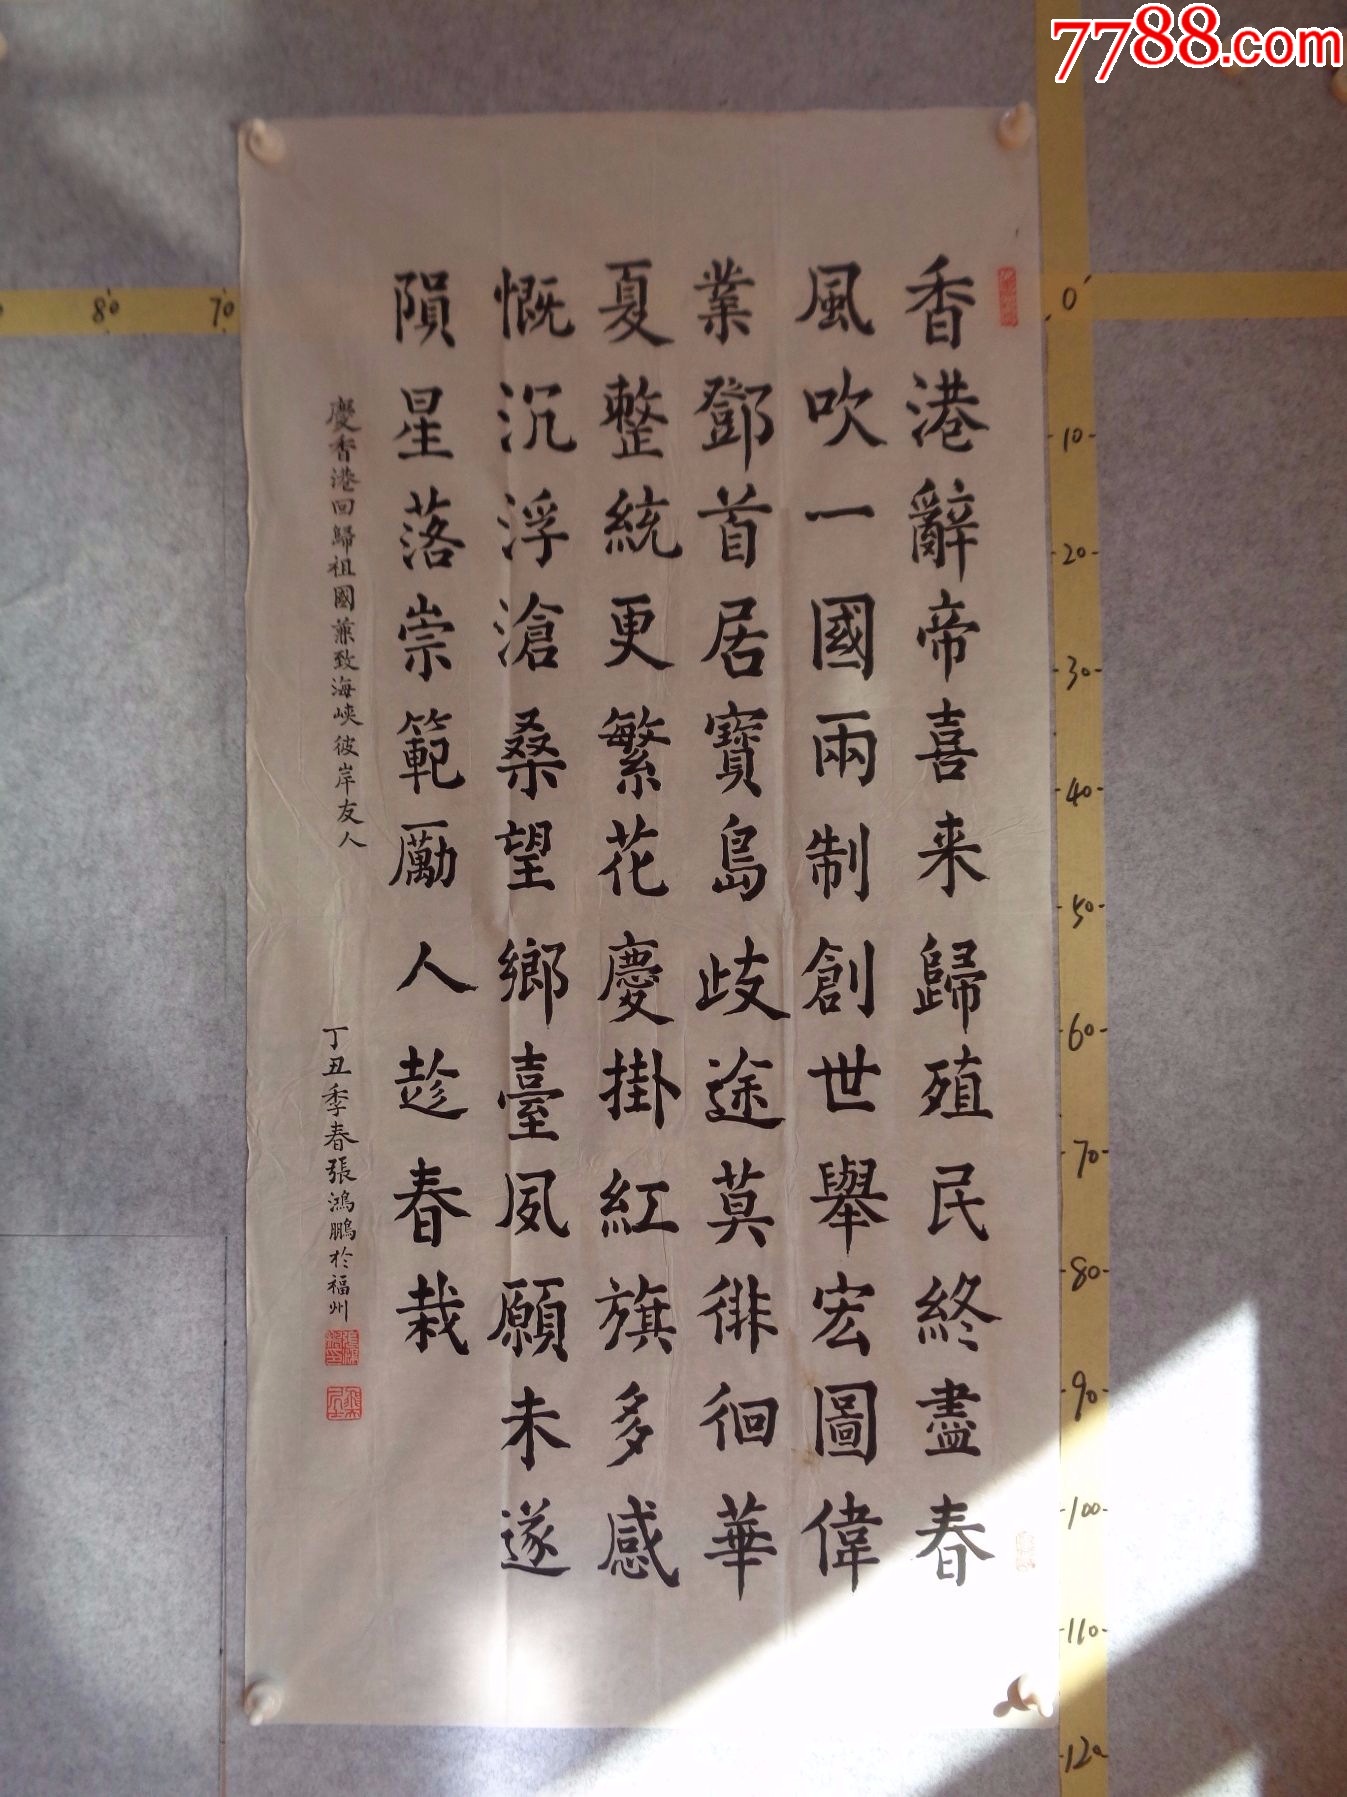 7788.com
香港辭帝喜来歸殖民終盡春
風吹一國兩制創世舉宏圖偉
業鄧首居寶島歧途莫徘徊華
夏整統更繁花慶掛紅旗多感
慨沉浮滄桑望鄉臺夙願未遂
隕星落崇範勵人趁春栽
慶香港回歸祖國兼致海峽彼岸友人
丁丑季春張鴻鵬於福州
80 70 0
10
20
30
40
50
60
70
80
90
100
110
120